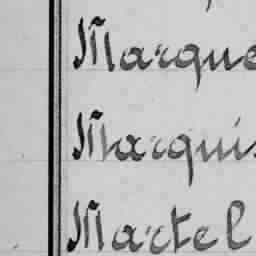 Marque
Marquis
Martel